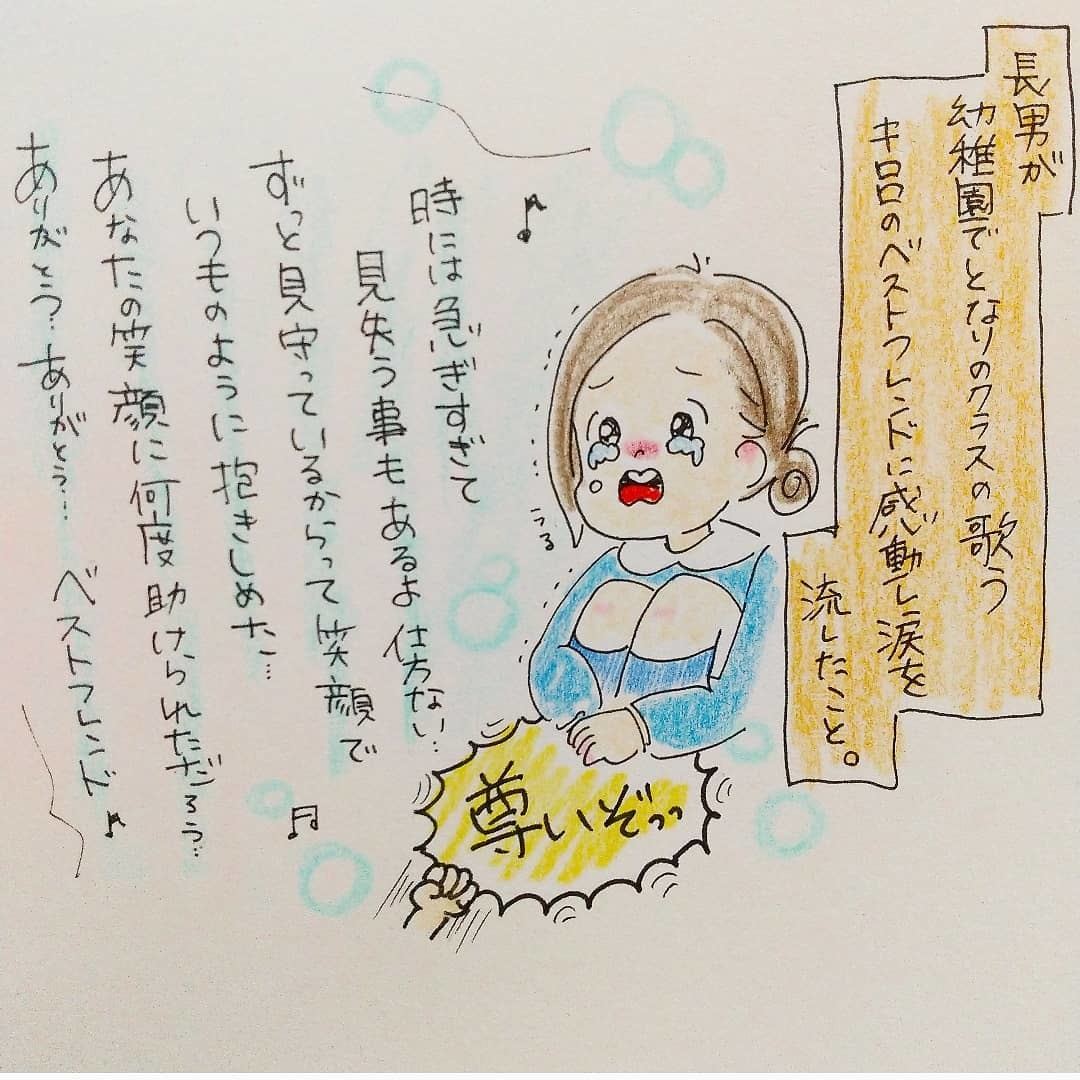 長男が
幼稚園でとなりのクラスの歌う
キロロのベストフレンドに感動し涙を
流したこと。
うる
時には急ぎすぎて
見失う事もあるよ仕方ない…
ずっと見守っているからって笑顔で
いつものように抱きしめた…
あなたの笑顔に何度助けられただろう…
ありがとう…ありがとう… ベストフレンド
尊いぞっっ